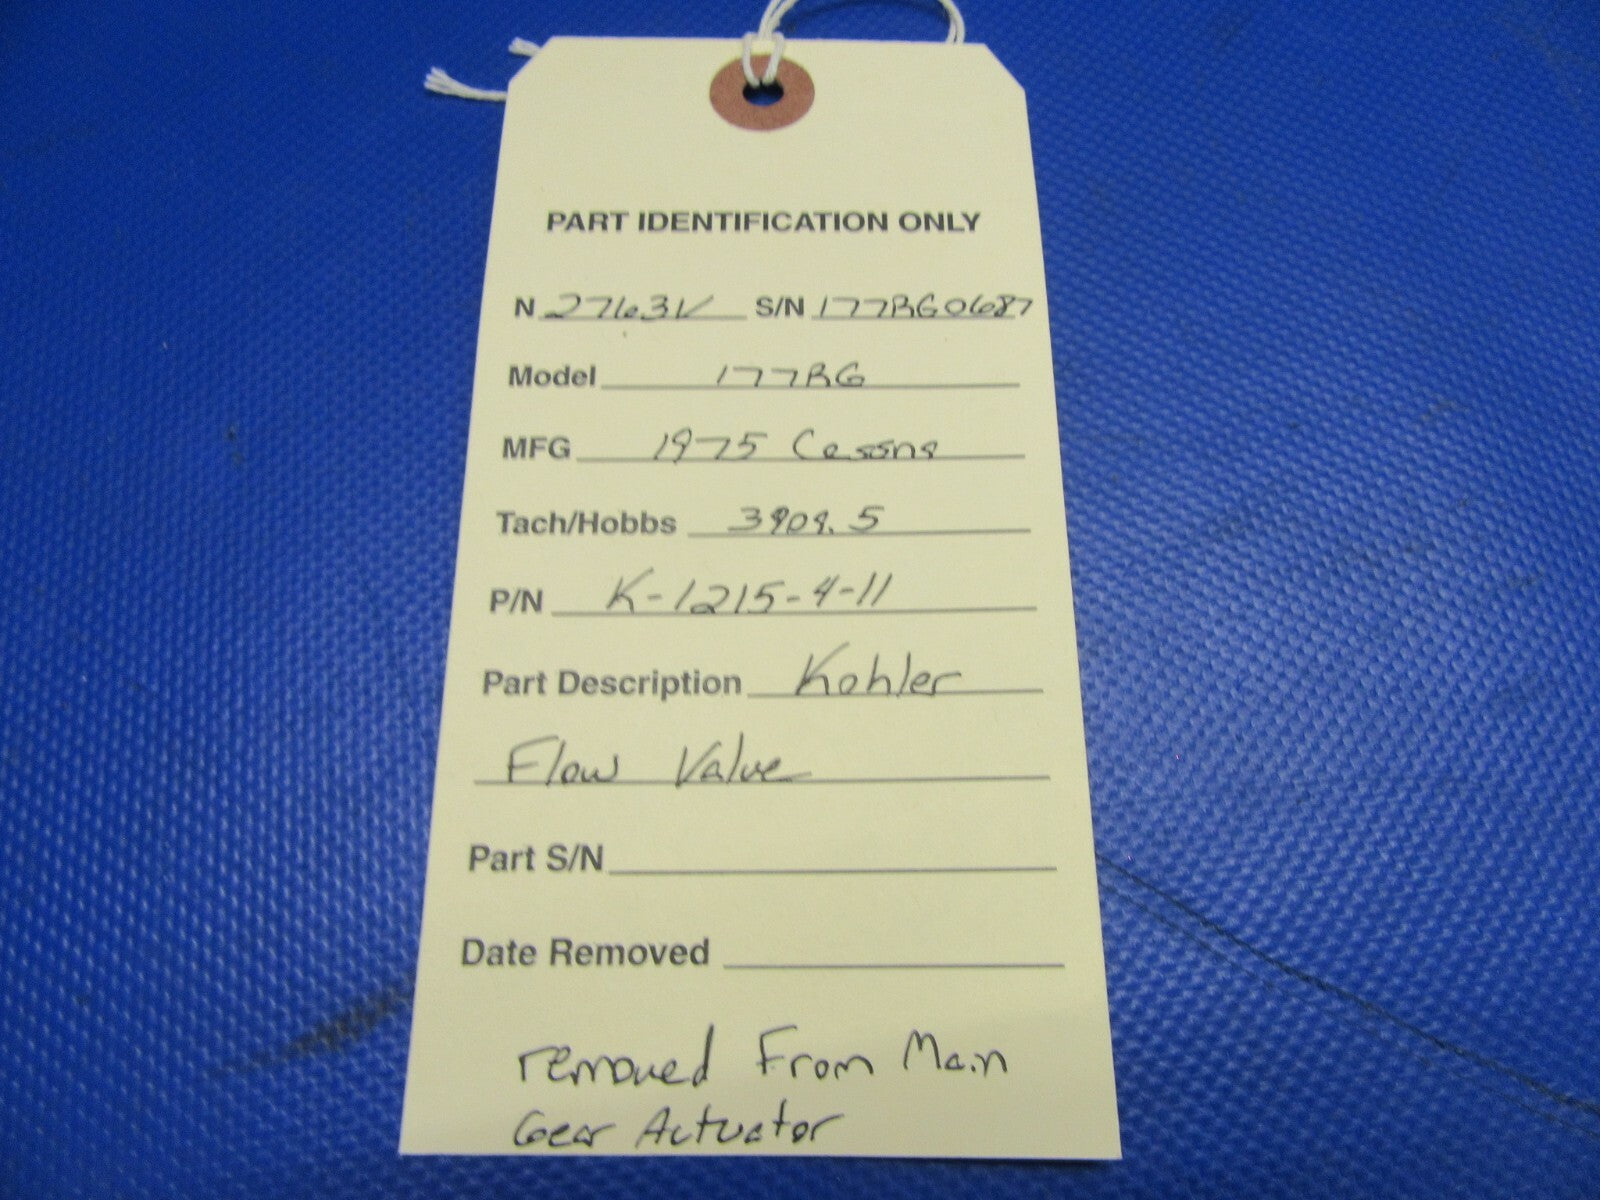 PART IDENTIFICATION ONLY
N 2763V S/N 177RG0687
Model 177RG
MFG 1975 Cessna
Tach/Hobbs 3909.5
P/N K-1215-4-11
Part Description Kohler
Flow Valve
Part S/N
Date Removed
removed From Main
Gear Actuator